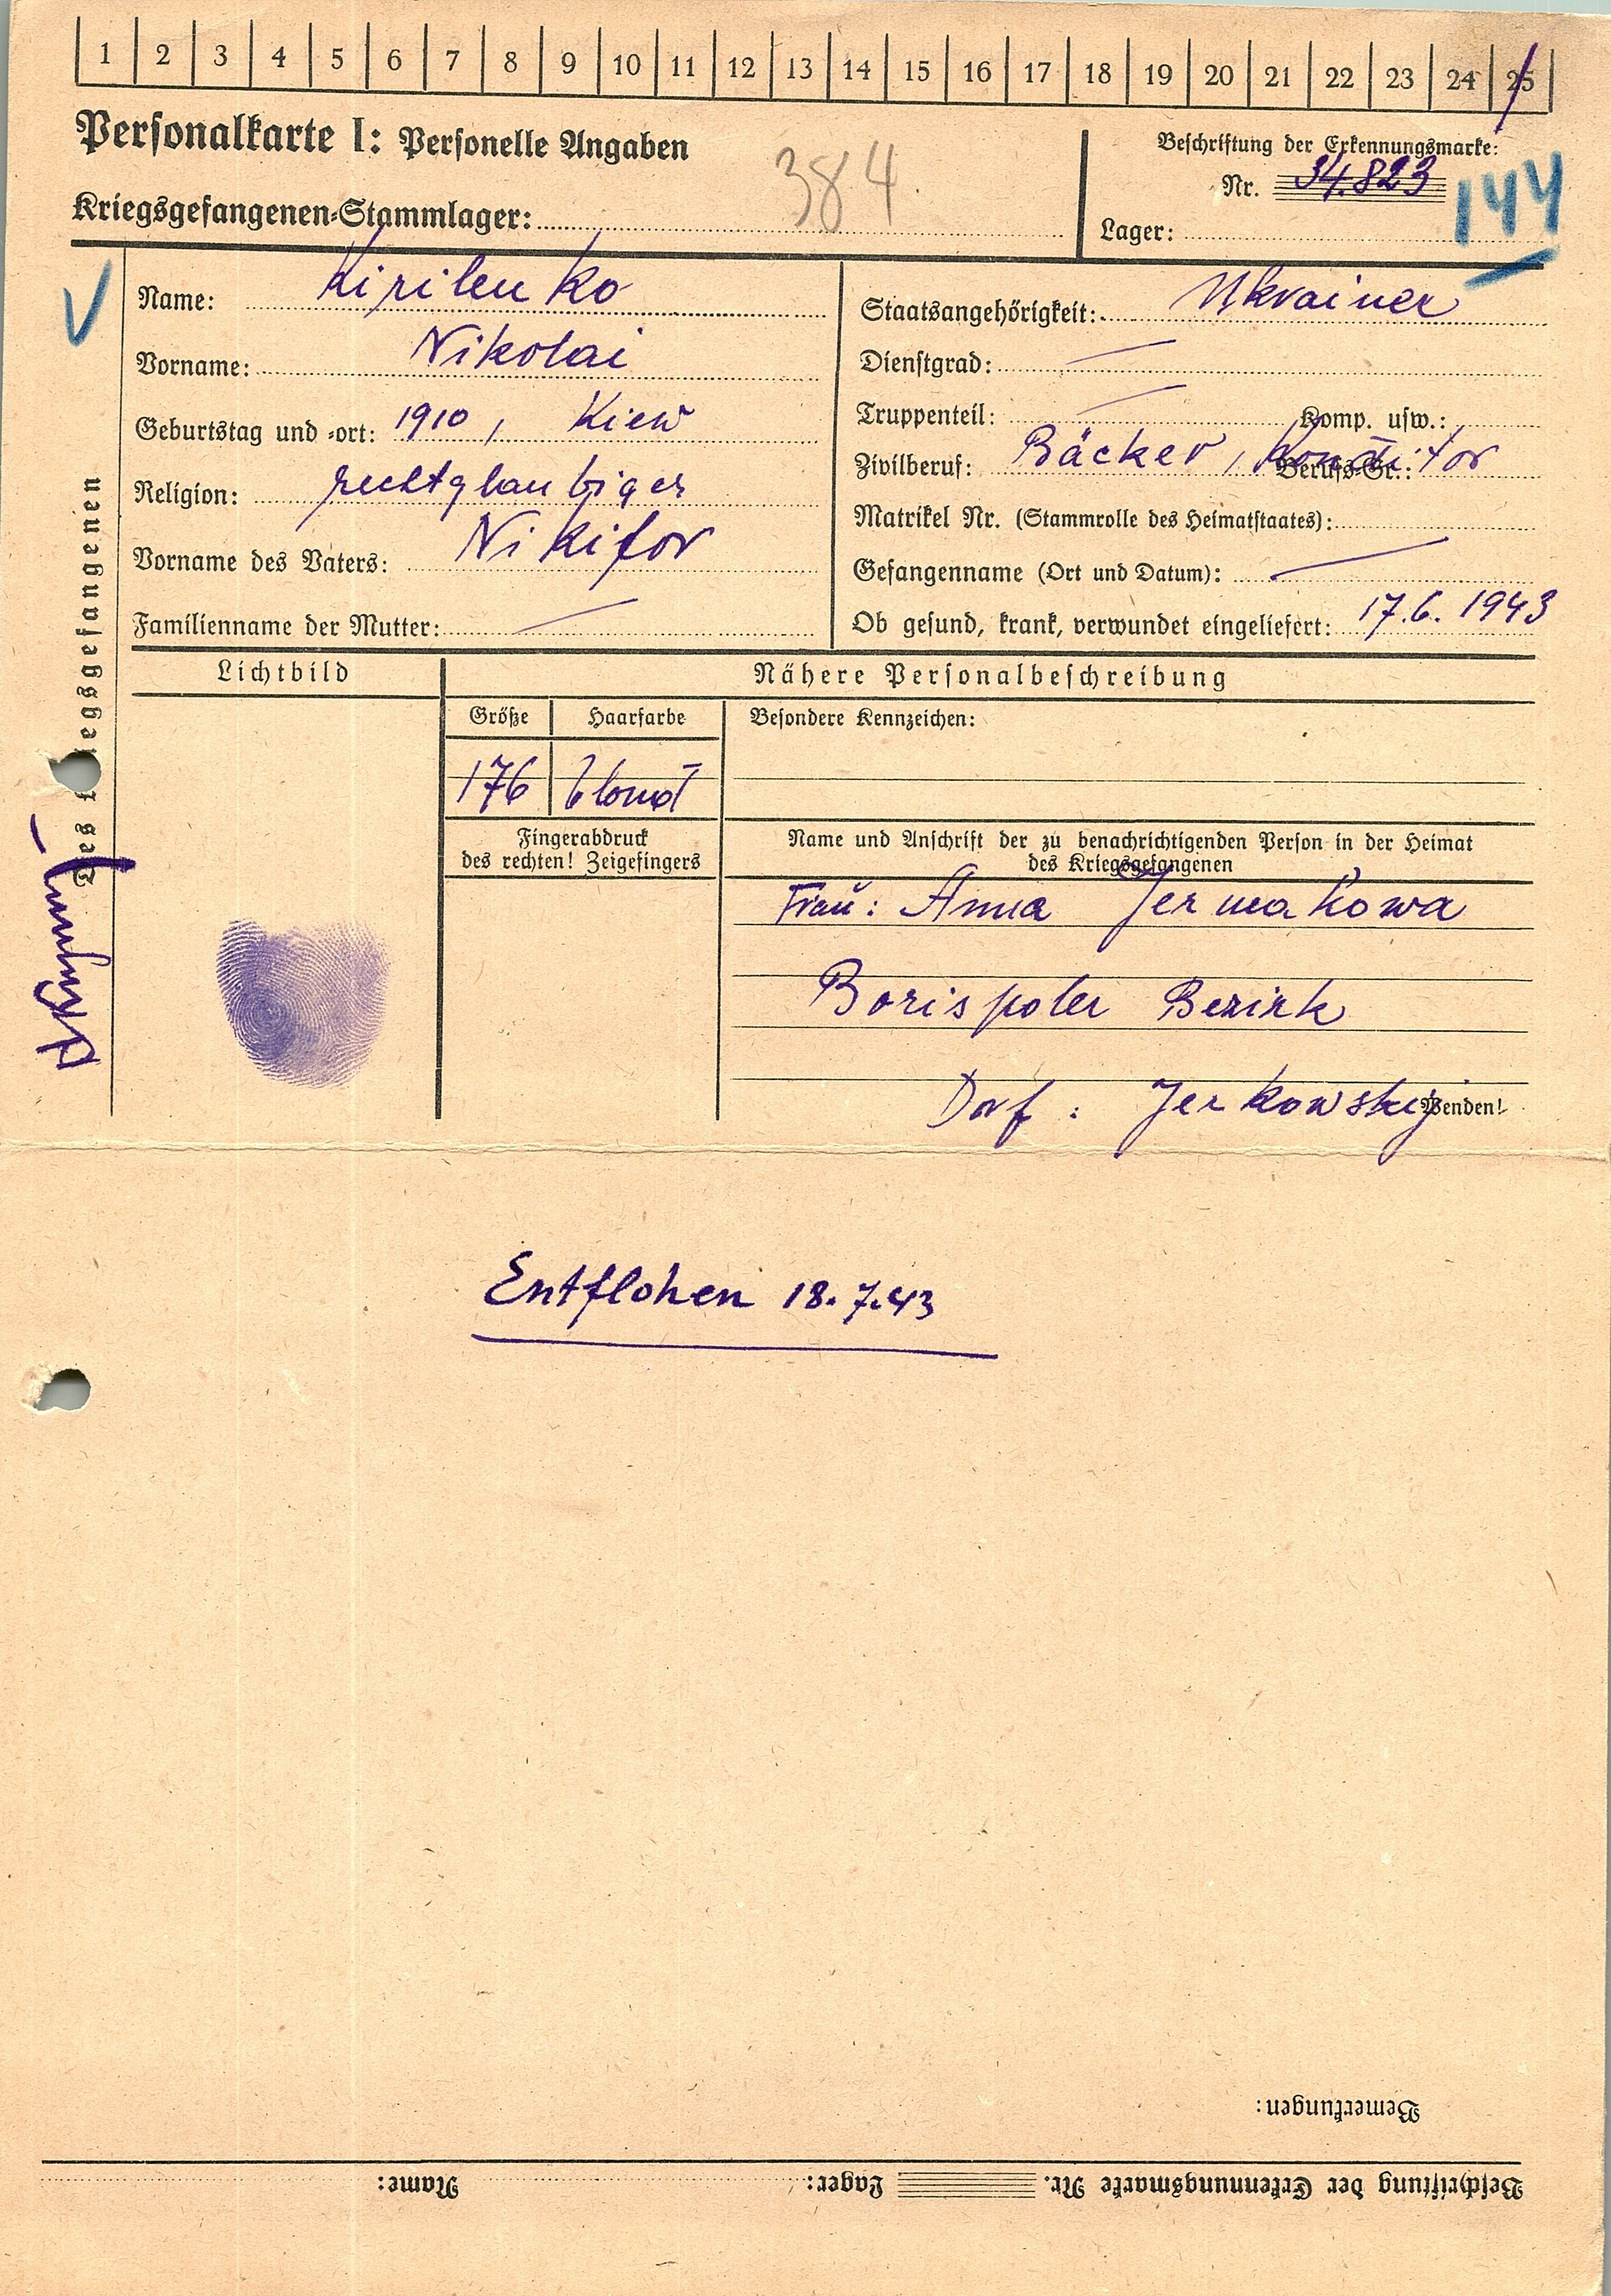 1 2 3 4 5 6 7 8 9 10 11 12 13 14 15 16 17 18 19 20 21 22 23 24 25
Personalkarte I: Personelle Angaben
384
Kriegsgefangenen-Stammlager:
Beschriftung der Erkennungsmarke:
Nr. 34.823
144
Lager:
Name: Kirilenko
Vorname: Nikolai
Geburtstag und -ort: 1910, Kiew
Religion: rechtglaubiger
Vorname des Vaters: Nikifor
Familienname der Mutter: —
Staatsangehörigkeit: Ukrainer
Dienstgrad: —
Truppenteil: — Komp. usw.:
Zivilberuf: Bäcker, Konditor Berufs-Gr.:
Matrikel Nr. (Stammrolle des Heimatstaates):
Gefangennahme (Ort und Datum): —
Ob gesund, krank, verwundet eingeliefert: 17.6.1943
Des Kriegsgefangenen
Lichtbild
Nähere Personalbeschreibung
Größe Haarfarbe
176 blond
Besondere Kennzeichen:
Fingerabdruck
des rechten! Zeigefingers
Name und Anschrift der zu benachrichtigenden Person in der Heimat
des Kriegsgefangenen
Frau: Anna Jermakowa
Borispoler Bezirk
Dorf: Jerkowskij
Wenden!
Entflohen 18.7.43
Bemerkungen:
Beschriftung der Erkennungsmarke Nr. Lager: Name: